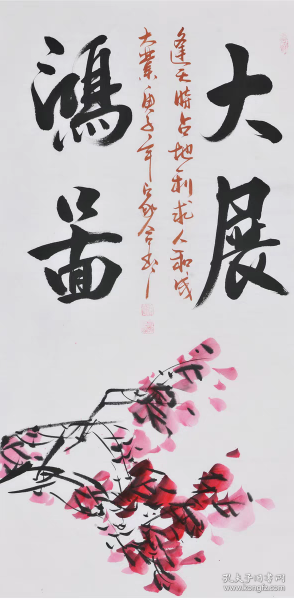 大展
鸿图
逢天時占地利求人和成
大業庚子年
孔夫子旧书网
www.kongfz.com